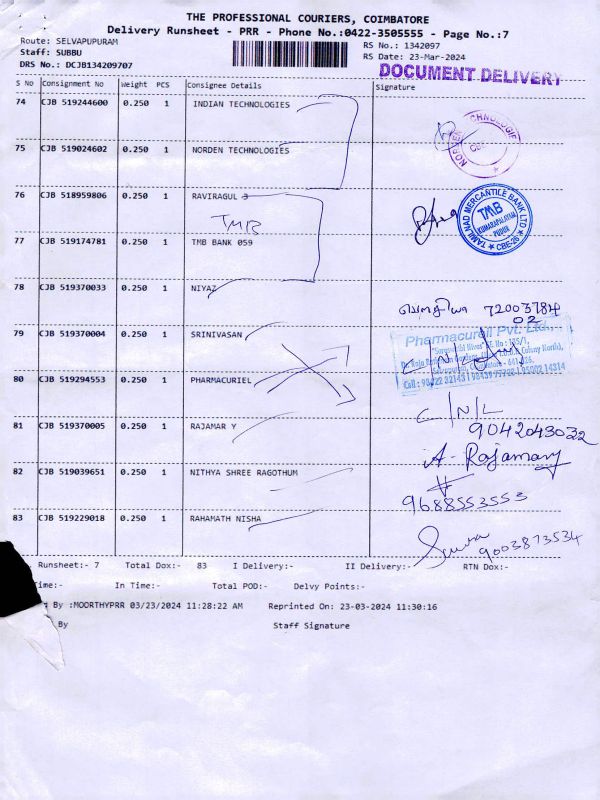 THE PROFESSIONAL COURIERS, COIMBATORE
Delivery Runsheet - PRR - Phone No.:0422-3505555 - Page No.:7
Route: SELVAPUPURAM
RS No.: 1342097
Staff: SUBBU
RS Date: 23-Mar-2024
DRS No.: DCJB134209707
DOCUMENT DELIVERY
S No Consignment No Weight PCS Consignee Details Signature
74 CJB 519244600 0.250 1 INDIAN TECHNOLOGIES
75 CJB 519024602 0.250 1 NORDEN TECHNOLOGIES
76 CJB 518959806 0.250 1 RAVIRAGUL
TMB
TAMILNAD MERCANTILE BANK LTD
TMB
KUMARAPALAYAM
PUDUR
CBE-26
77 CJB 519174781 0.250 1 TMB BANK 059
78 CJB 519370033 0.250 1 NIYAZ
72003784
02
79 CJB 519370004 0.250 1 SRINIVASAN
Pharmacurell Pvt. Ltd.,
80 CJB 519294553 0.250 1 PHARMACURIEL
C/N/L
81 CJB 519370005 0.250 1 RAJAMAR Y
9042043032
A. Rajamary
82 CJB 519039651 0.250 1 NITHYA SHREE RAGOTHUM
9688553553
83 CJB 519229018 0.250 1 RAHAMATH NISHA
9003873534
Runsheet:- 7 Total Dox:- 83 I Delivery:- II Delivery:- RTN Dox:-
Time:- In Time:- Total POD:- Delvy Points:-
By :MOORTHYPRR 03/23/2024 11:28:22 AM Reprinted On: 23-03-2024 11:30:16
By Staff Signature